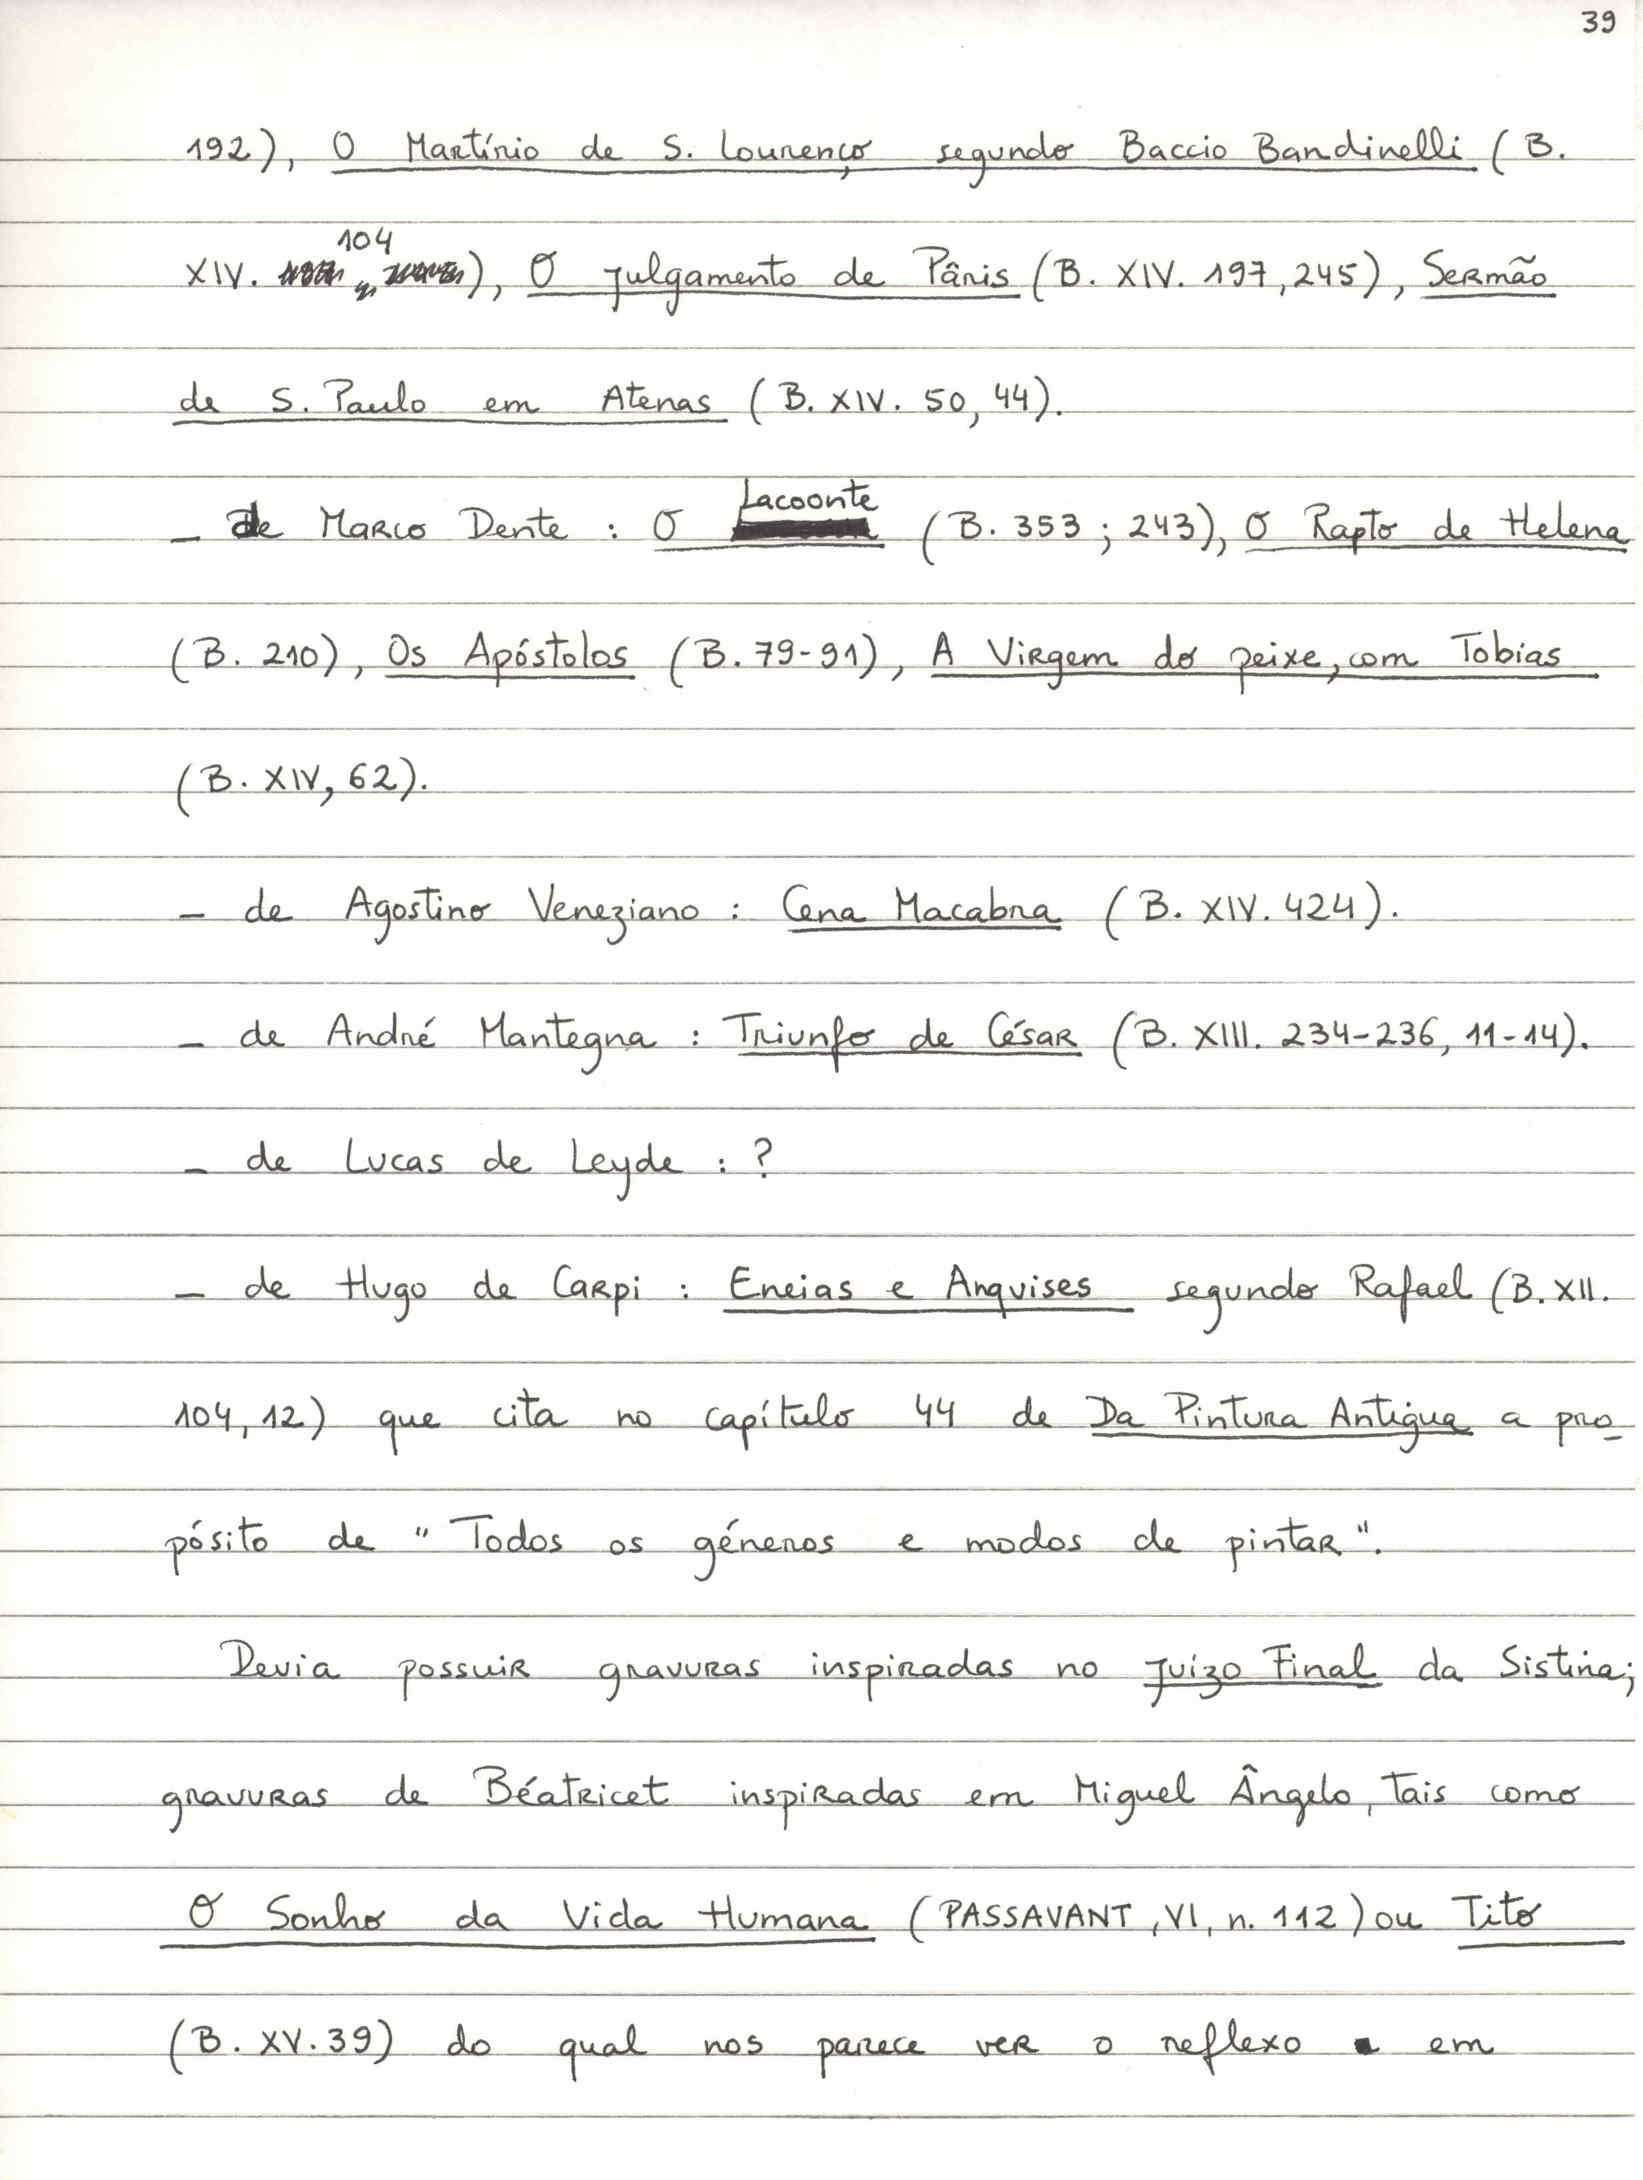 39
192), O Martírio de S. Lourenço segundo Baccio Bandinelli (B.
104
XIV. ), O julgamento de Pâris (B. XIV. 197, 245), Sermão
de S. Paulo em Atenas (B. XIV. 50, 44).
Lacoonte
- de Marco Dente : O (B. 353 ; 243), O Rapto de Helena
(B. 210), Os Apóstolos (B. 79-91), A Virgem do peixe, com Tobias
(B. XIV, 62).
- de Agostino Veneziano : Cena Macabra (B. XIV. 424).
- de André Mantegna : Triunfo de César (B. XIII. 234-236, 11-14).
- de Lucas de Leyde : ?
- de Hugo de Carpi : Eneias e Anquises segundo Rafael (B. XII.
104, 12) que cita no capítulo 44 de Da Pintura Antigua a pro-
pósito de "Todos os géneros e modos de pintar".
Devia possuir gravuras inspiradas no Juízo Final da Sistina;
gravuras de Béatricet inspiradas em Miguel Ângelo, tais como
O Sonho da Vida Humana (PASSAVANT, VI, n. 112) ou Tito
(B. XV. 39) do qual nos parece ver o reflexo em